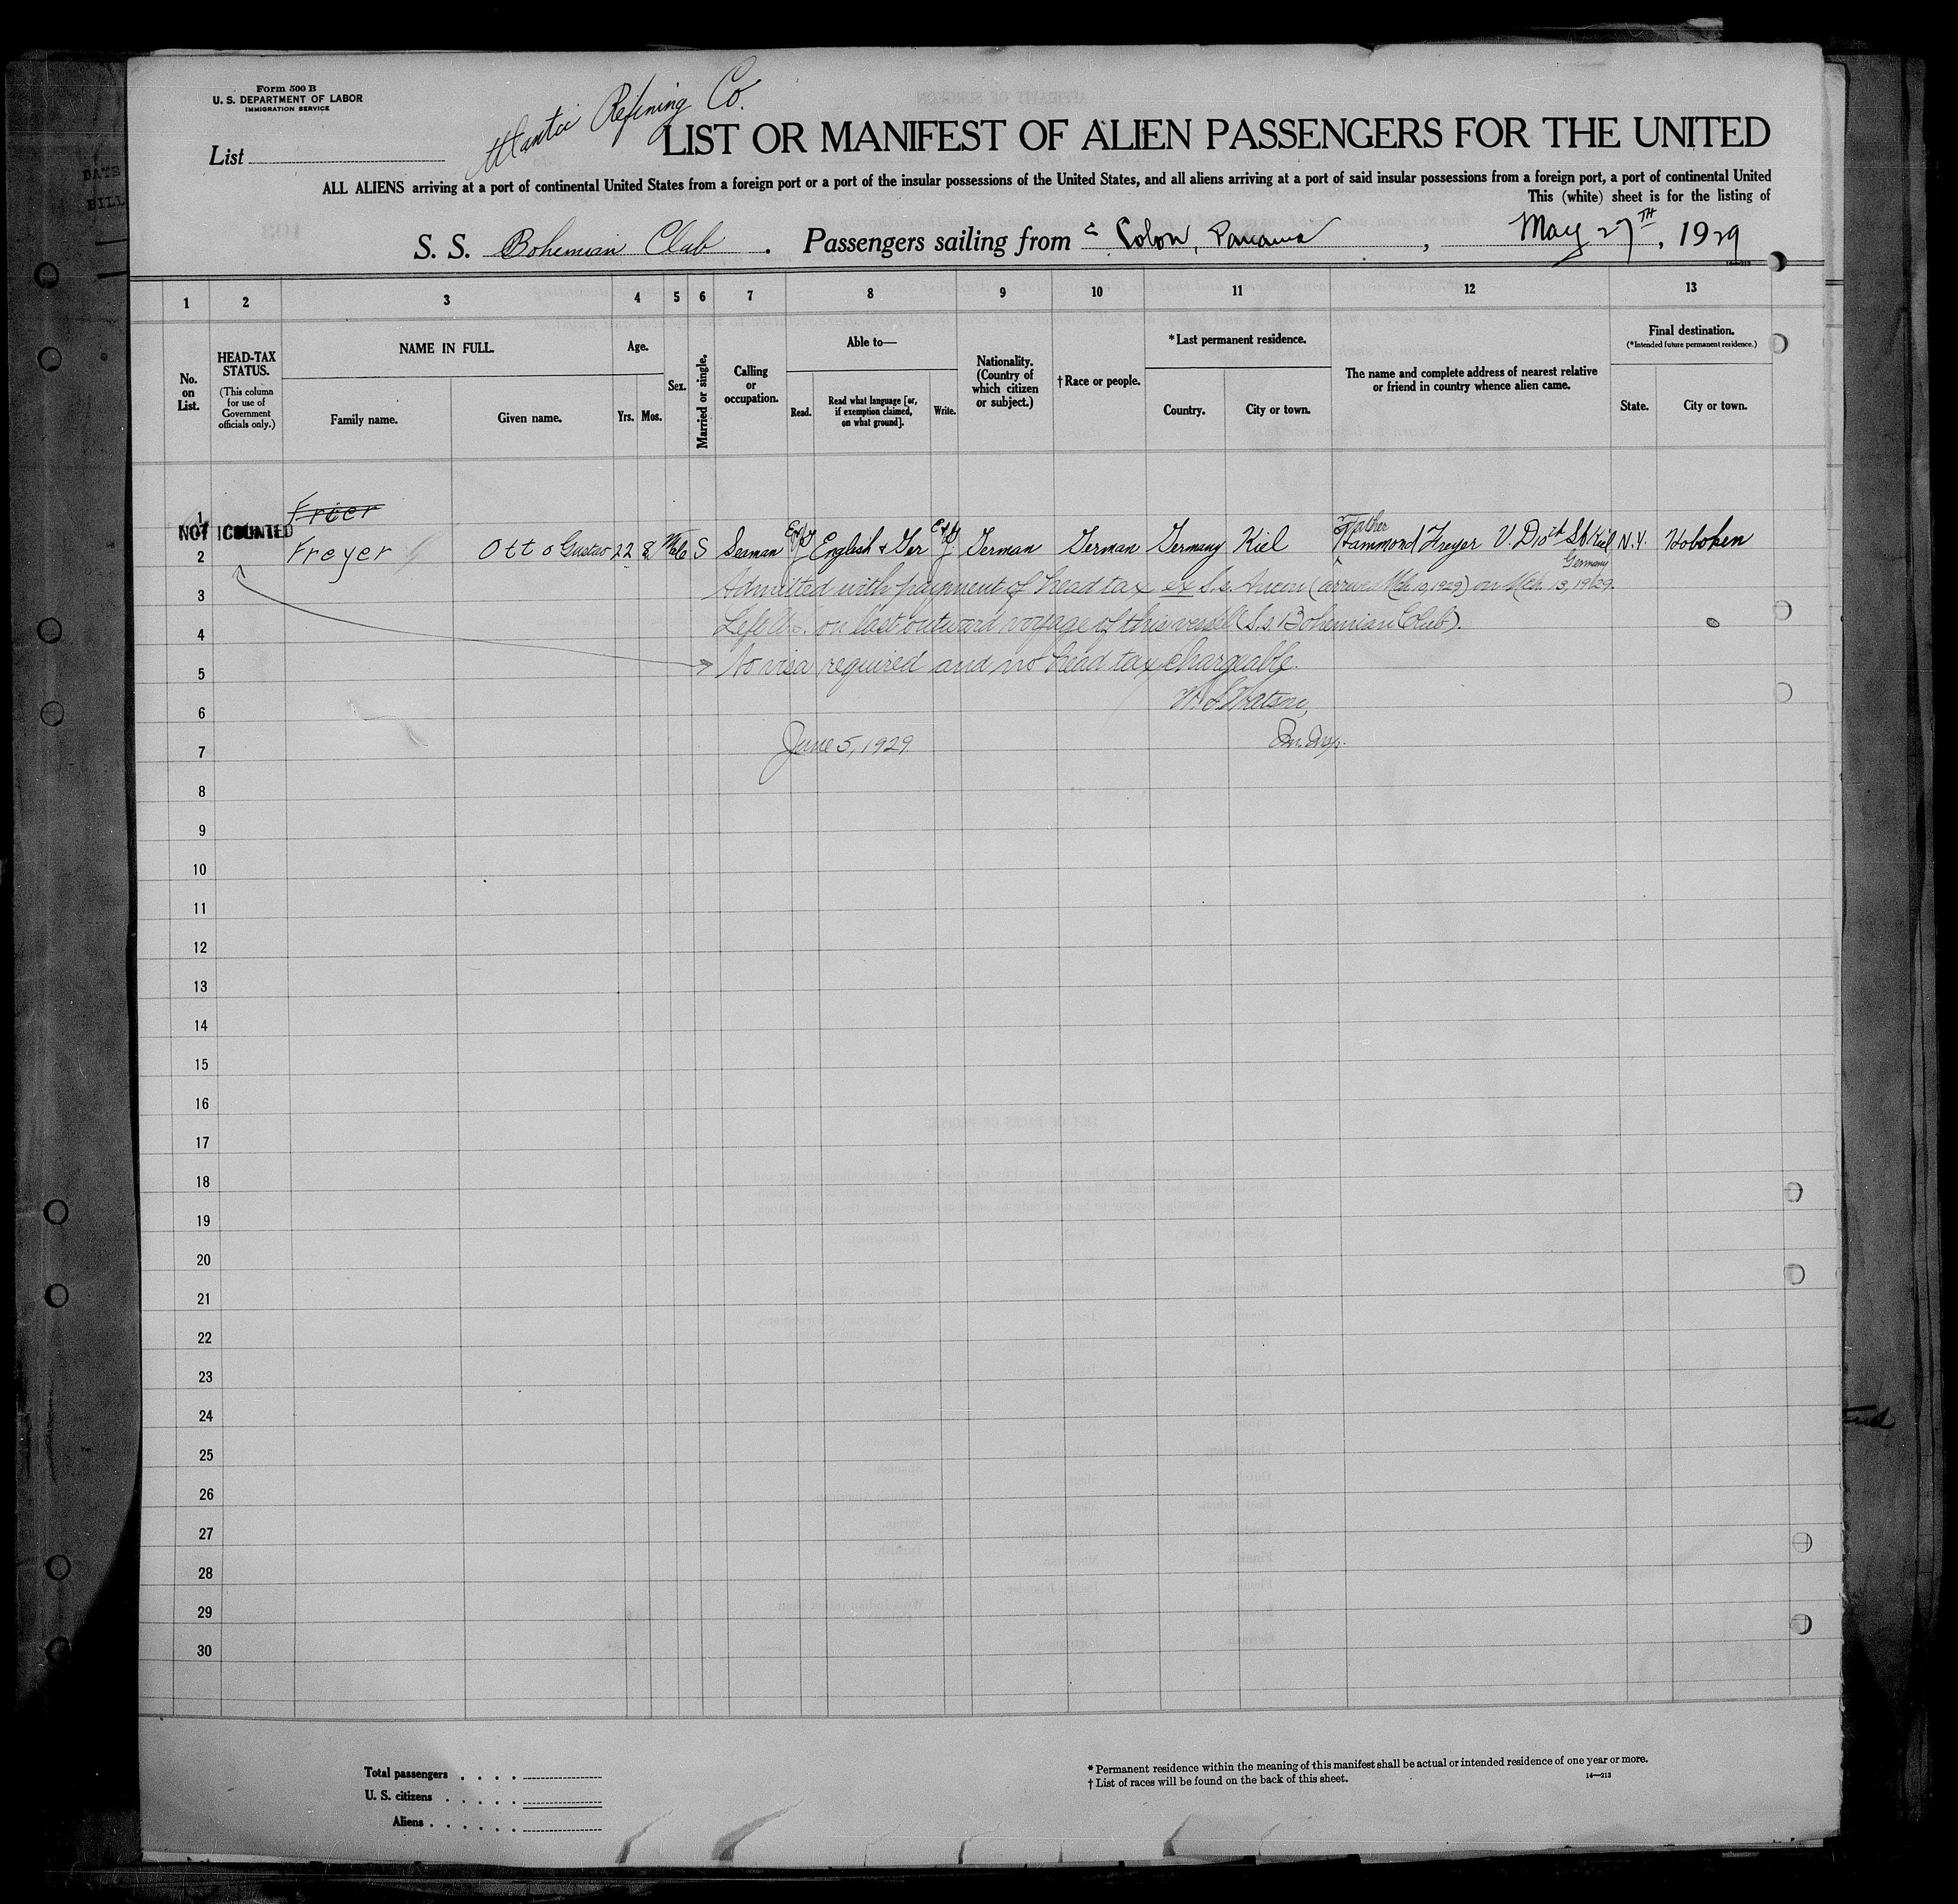 Form 500 B
U. S. DEPARTMENT OF LABOR
IMMIGRATION SERVICE
Atlantic Refining Co.
List
LIST OR MANIFEST OF ALIEN PASSENGERS FOR THE UNITED
ALL ALIENS arriving at a port of continental United States from a foreign port or a port of the insular possessions of the United States, and all aliens arriving at a port of said insular possessions from a foreign port, a port of continental United
This (white) sheet is for the listing of
S. S. Bohemian Club . Passengers sailing from Colon, Panama , May 27TH, 1929
14—213
1 2 3 4 5 6 7 8 9 10 11 12 13
No. on List.
HEAD-TAX STATUS.
(This column for use of Government officials only.)
NAME IN FULL.
Family name.
Given name.
Age.
Yrs. Mos.
Sex.
Married or single.
Calling or occupation.
Able to—
Read.
Read what language [or, if exemption claimed, on what ground].
Write.
Nationality. (Country of which citizen or subject.)
†Race or people.
*Last permanent residence.
Country.
City or town.
The name and complete address of nearest relative or friend in country whence alien came.
Final destination.
(*Intended future permanent residence.)
State.
City or town.
1 Frier
NOT COUNTED
2 Freyer Otto Gustav 22 8 Male S Seaman English & Ger German German Germany Kiel Father Hammond Freyer Kiel Germany N.Y. Hoboken
3 Admitted with payment of head tax ex S.s. (arrived Mch. 10, 1929) on Mch. 13, 1929.
4 Left U.S. on last outward voyage of this vessel (S.s. Bohemian Club).
5 No visa required and no head tax chargeable.
6 W. S. Watson,
7 June 5, 1929 Im. Insp.
8
9
10
11
12
13
14
15
16
17
18
19
20
21
22
23
24
25
26
27
28
29
30
Total passengers . . . .
U. S. citizens . . . . .
Aliens . . . . . .
* Permanent residence within the meaning of this manifest shall be actual or intended residence of one year or more.
† List of races will be found on the back of this sheet.
14—213